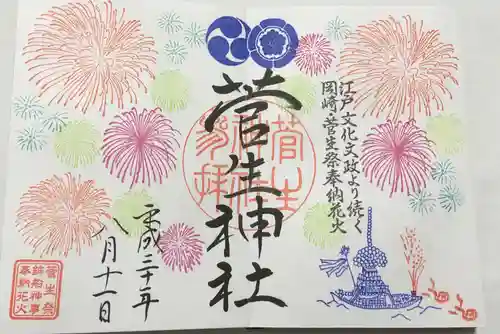 江戸文化文政より続く
岡崎・菅生祭奉納花火
菅生神社
平成三十年
八月十一日
菅生祭
鉾船神事
奉納花火